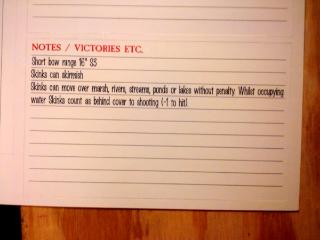 NOTES / VICTORIES ETC.
Short bow range 16" S3
Skinks can skirmish
Skinks can move over marsh, rivers, streams, ponds or lakes without penalty. Whilst occupying
water Skinks count as behind cover to shooting (-1 to hit).